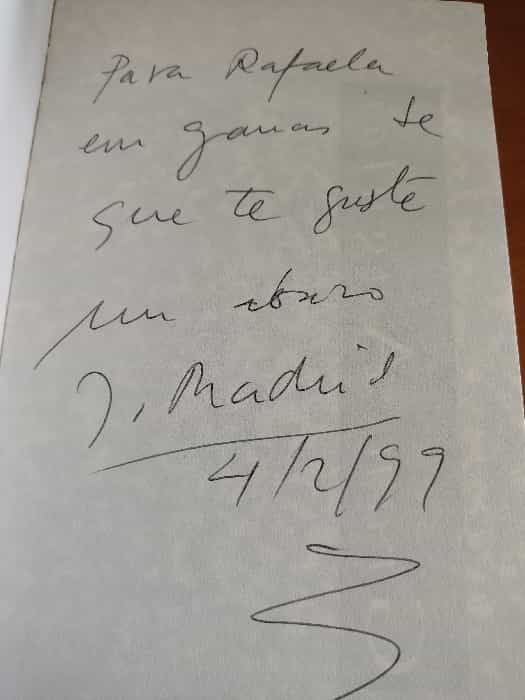 Para Rafaela
con ganas de
que te guste
un abrazo
J. Madrid
4/2/99